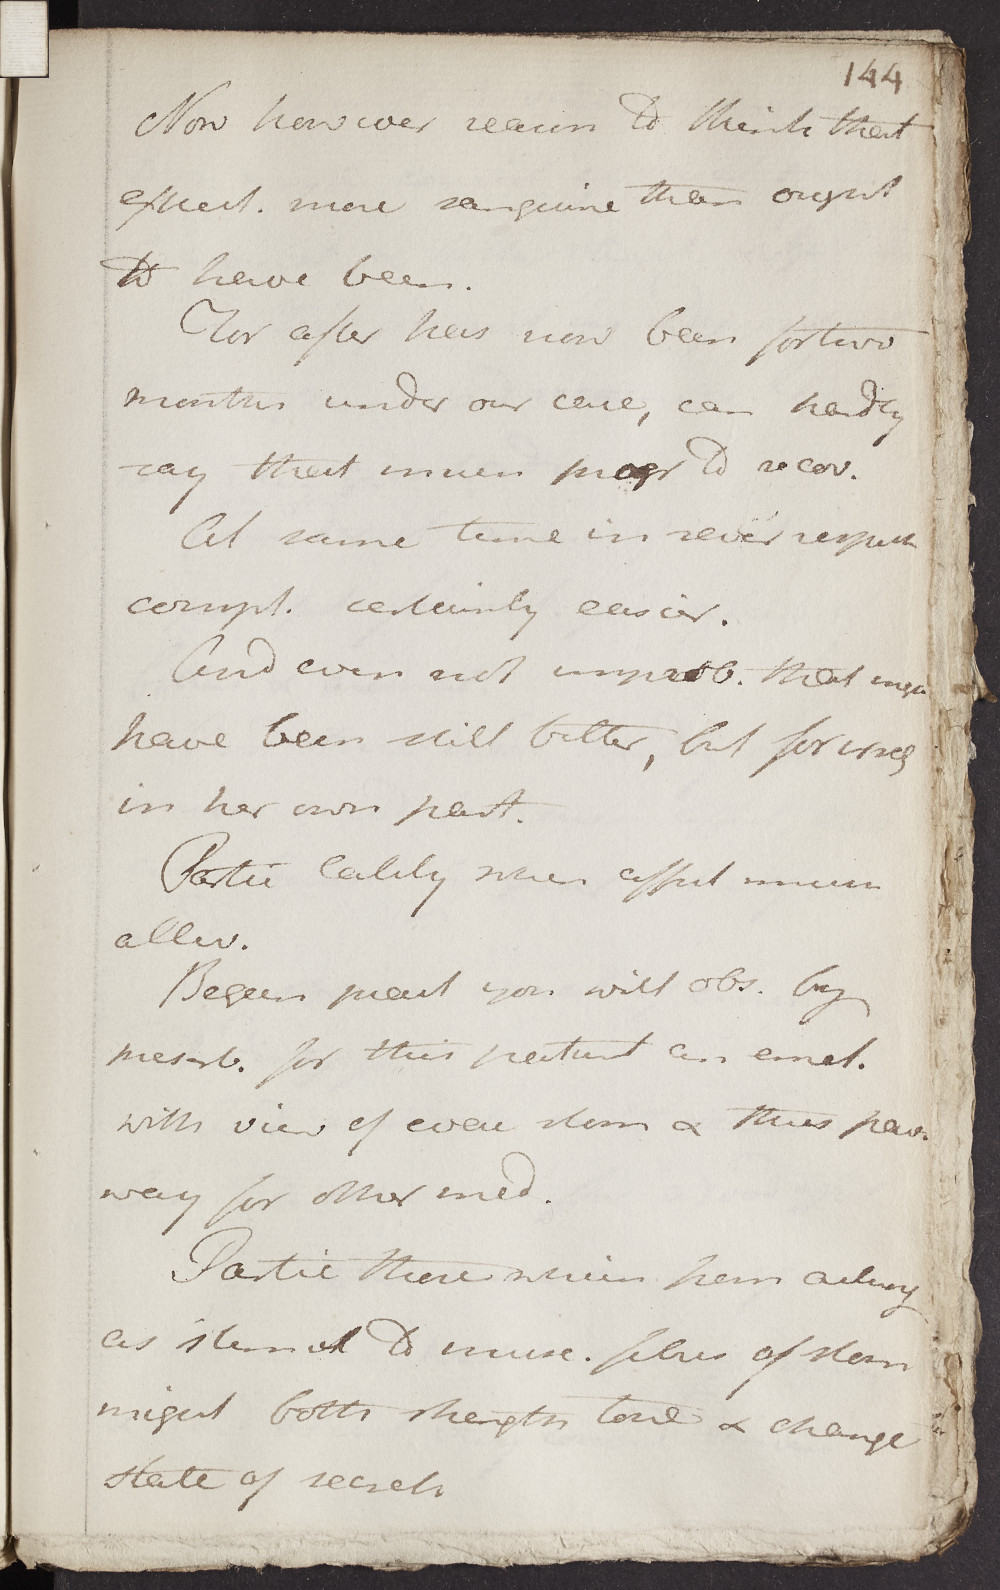 144
Now however reason to think that
expect. more sanguine than ought
to have been.
For after has now been for two
months under our care, can hardly
say that much progr to recov.
At same time in sever respects
compl. certainly easier.
And even not improb. that might
have been still better, but for
in her own part.
Partic lately when much
allev.
Began pract you will obs. by
prescrib. for this patient an emet.
with view of evac stom & thus pav.
way for other med.
Partic those which from acting
as stimul to musc. fibres of stom
might both strengthn tone & change
state of secret